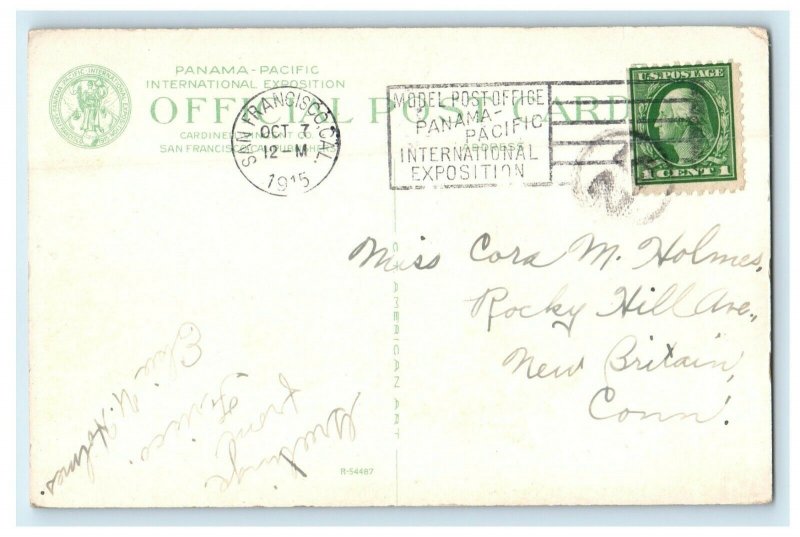 PANAMA-PACIFIC
INTERNATIONAL EXPOSITION
OFFICIAL POST CARD
SAN FRANCISCO, CAL.
OCT 7
12-M
1915
MODEL POST OFFICE
PANAMA-
PACIFIC
INTERNATIONAL
EXPOSITION
U.S. POSTAGE
1 CENT 1
ADDRESS
Miss Cora M. Holmes,
Rocky Hill Ave.,
New Britain,
Conn.
Greetings
from
Frisco.
H. Holmes.
AMERICAN ART
R-54487